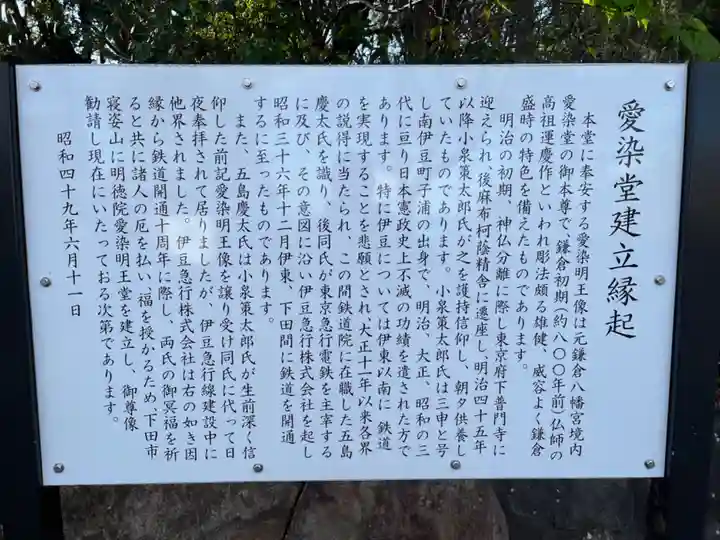 愛染堂建立縁起
本堂に奉安する愛染明王像は元鎌倉八幡宮境内
愛染堂の御本尊で、鎌倉初期(約八〇〇年前)仏師の
高祖運慶作といわれ彫法頗る雄健、威容よく鎌倉
盛時の特色を備えたものであります。
明治の初期、神仏分離に際し東京府下普門寺に
迎えられ、後麻布柯蔭精舎に遷座し、明治四十五年
以降小泉策太郎氏が之を護持信仰し、朝夕供養し
ていたものであります。小泉策太郎氏は三申と号
し南伊豆町子浦の出身で、明治、大正、昭和の三
代に亘り日本憲政史上不滅の功績を遺された方で
あります。特に伊豆については伊東以南に鉄道
を実現することを悲願とされ、大正十一年以来各界
の説得に当たられ、この間鉄道院に在職した五島
慶太氏を識り、後同氏が東京急行電鉄を主宰する
に及び、その意図に沿い伊豆急行株式会社を起し
昭和三十六年十二月伊東、下田間に鉄道を開通
するに至ったものであります。
また、五島慶太氏は小泉策太郎氏が生前深く信
仰した前記愛染明王像を譲り受け同氏に代って日
夜奉拝されて居りましたが、伊豆急行線建設中に
他界されました。伊豆急行株式会社は右の如き因
縁から鉄道開通十周年に際し、両氏の御冥福を祈
ると共に諸人の厄を払い、福を授かるため、下田市
寝姿山に明徳院愛染明王堂を建立し、御尊像
勧請し現在にいたっておる次第であります。
昭和四十九年六月十一日